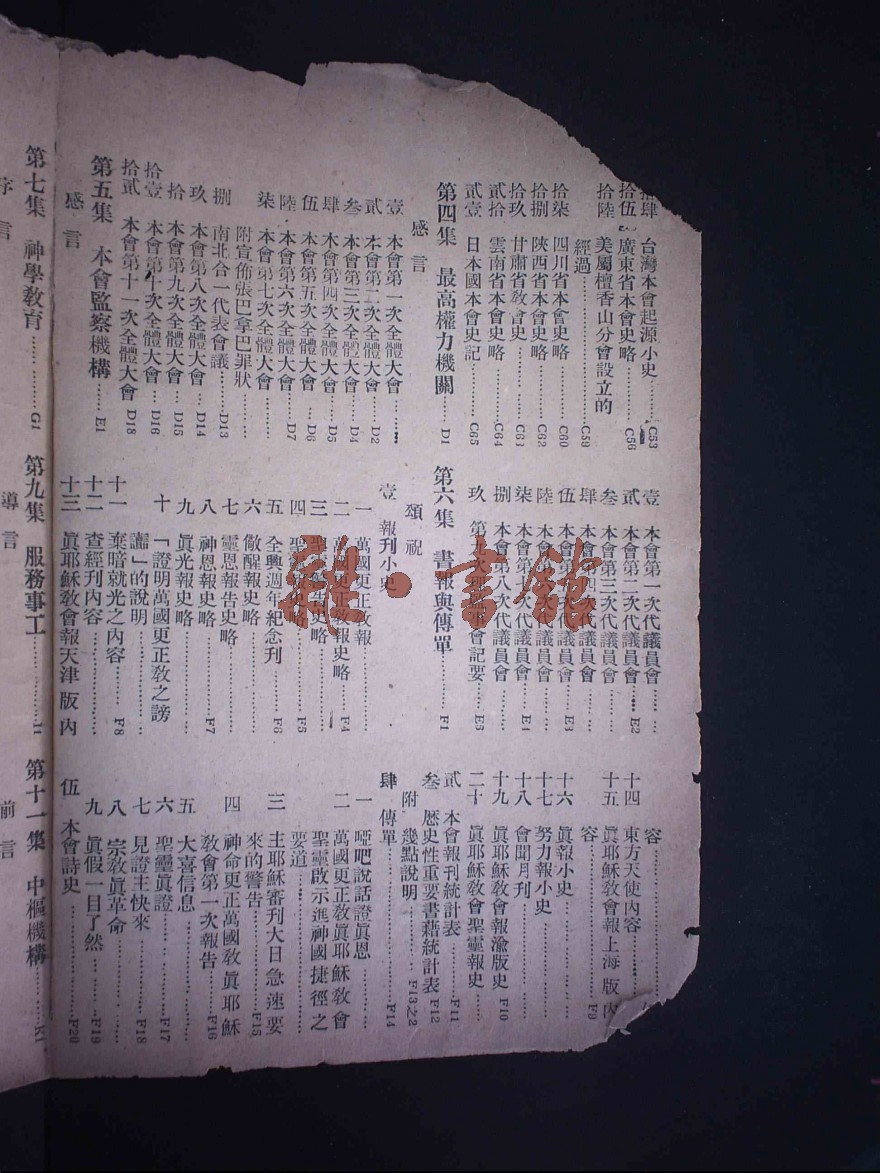 拾肆 台灣本會起源小史……C53
拾伍 廣東省本會史略……C56
拾陸 美屬檀香山分會設立的
經過……C59
拾柒 四川省本會史略……C60
拾捌 陝西省本會史略……C62
拾玖 甘肅省教會史……C63
貳拾 雲南省本會史略……C64
貳壹 日本國本會史記……C65
第四集 最高權力機關……D1
感言
壹 本會第一次全體大會……
貳 本會第二次全體大會……D2
叁 本會第三次全體大會……D4
肆 本會第四次全體大會……D5
伍 本會第五次全體大會…D6
陸 本會第六次全體大會……D7
附宣佈張巴拿巴罪狀……
柒 本會第七次全體大會……
捌 南北合一代表會議……D13
玖 本會第八次全體大會…D14
拾 本會第九次全體大會…D15
拾壹 本會第十次全體大會…D16
拾貳 本會第十一次全體大會 D18
第五集 本會監察機構……E1
感言
壹 本會第一次代議員會……
貳 本會第二次代議員會…E2
叁 本會第三次代議員會……
肆 本會第四次代議員會……
伍 本會第五次代議員會…E3
陸 本會第六次代議員會……
柒 本會第七次代議員會…E4
捌 本會第八次代議員會……
玖 第九次理監事會記要…E5
第六集 書報與傳單……F1
頌祝
壹 報刊小史
一 萬國更正教報……
二 萬國更正教報史略…F4
三 聖靈報告史略……
四 聖潔報史略……F5
五 全興週年紀念刊……F6
六 儆醒報史略……
七 靈恩報告史略……
八 神恩報史略……F7
九 眞光報史略……
十 「證明萬國更正教之謗
讟」的說明……
十一 棄暗就光之內容……F8
十二 查經刊內容……
十三 眞耶穌教會報天津版內
容……
十四 東方天使內容……
十五 眞耶穌教會報上海版內
容……F9
十六 眞報小史……
十七 努力報小史……
十八 會聞月刊……
十九 眞耶穌教會報渝版史 F10
二十 眞耶穌教會聖靈報史……
貳 本會報刊統計表……F11
叁 歷史性重要書藉統計表 F12
附 幾點說明……F13之2
肆 傳單……F14
一 啞吧說話證眞恩……
二 萬國更正教眞耶穌教會
聖靈啟示進神國捷徑之
要道……
三 主耶穌審刊大日急速要
來的警告……F15
四 神命更正萬國教眞耶穌
教會第一次報告……F16
五 大喜信息……
六 聖靈眞證……F17
七 見證主快來……F18
八 宗教眞革命……
九 眞假一目了然……F19
伍 本會詩史……F20
第七集 神學教育……G1
序言
第九集 服務事工……I1
導言
第十一集 中樞機構……K1
前言
雜·書館